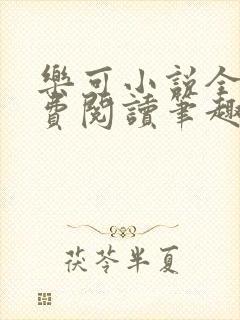 樂可小說全
費閱讀筆趣
茯苓半夏